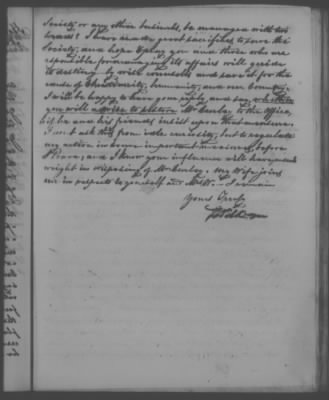 Society or any other business, be managed with two
heads? I have made great sacrifices to save the
Society, and hope & pray you and those who are
responsible for managing its affairs will decide
to destiny by wise counsels and save it for the
cause of Christianity, humanity, and our Country.
I will be happy to have your reply, and say whether
you will to Mr. to the Office,
if he and his friends insist upon that measure.
I don't ask this from idle curiosity, but to regulate
my action in some important measures, before
I leave, and I know your influence will have great
weight in disposing of Mr. My Wife joins
me in respects to yourself and I remain
Yours Truly